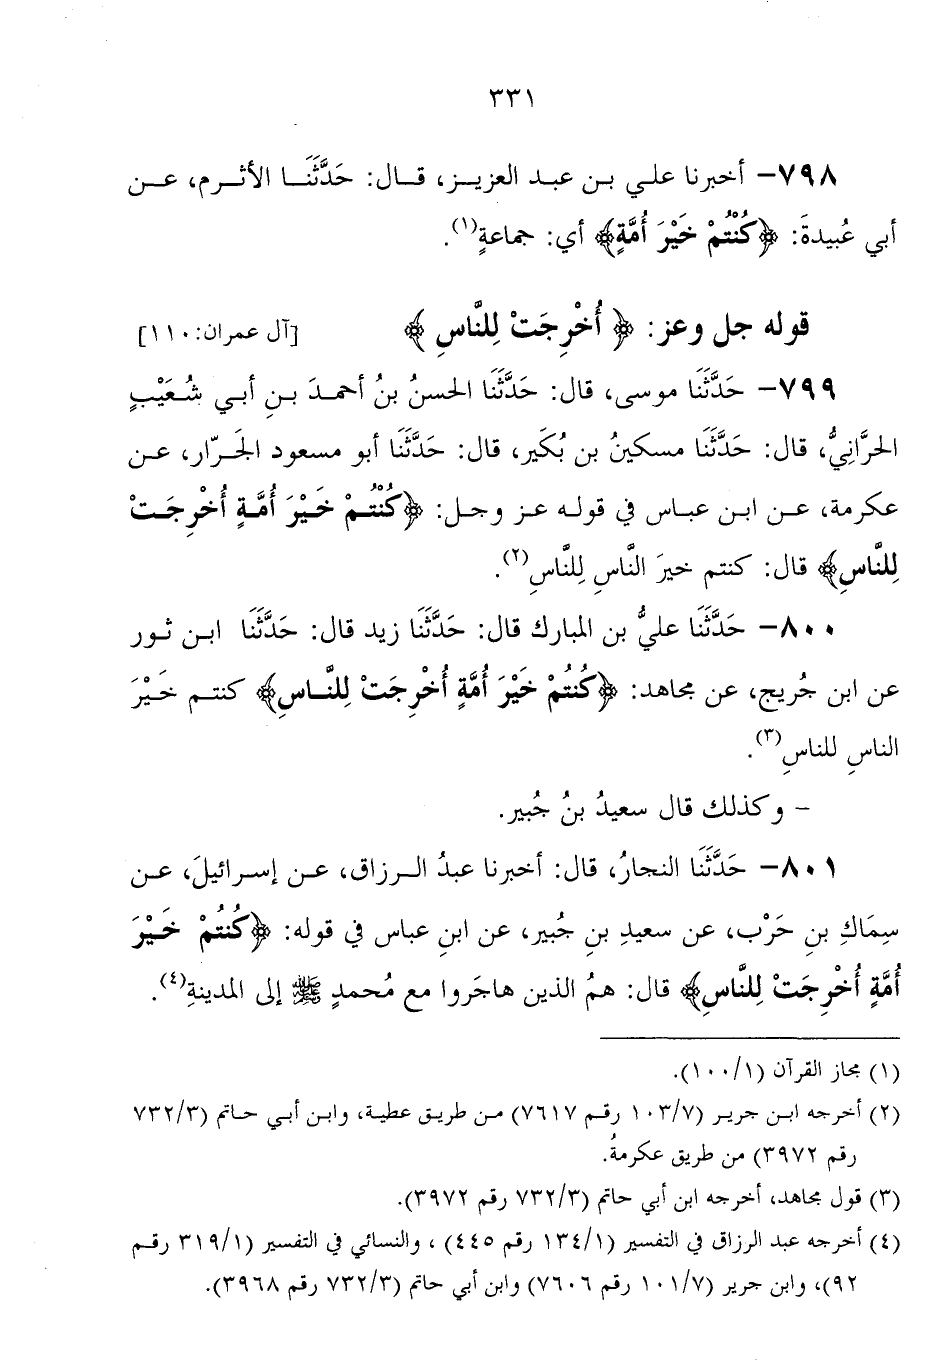 ٣٣١
٧٩٨– أخبرنا علي بن عبد العزيز، قال: حَدَّثَنَا الأثرم، عن
أبي عُبيدةَ: ﴿كُنْتُمْ خَيْرَ أُمَّةٍ﴾ أي: جماعةٍ(١).
قوله جل وعز: ﴿ أُخْرِجَتْ لِلنَّاسِ ﴾ [آل عمران: ١١٠]
٧٩٩– حَدَّثَنَا موسى، قال: حَدَّثَنَا الحسنُ بنُ أحمدَ بنِ أبي شُعَيْبٍ
الحرَّانِيُّ، قال: حَدَّثَنَا مسكينُ بن بُكَير، قال: حَدَّثَنَا أبو مسعود الجَرّار، عن
عكرمة، عن ابن عباس في قوله عز وجل: ﴿كُنْتُمْ خَيْرَ أُمَّةٍ أُخْرِجَتْ
لِلنَّاسِ﴾ قال: كنتم خيرَ النَّاسِ لِلنَّاسِ(٢).
٨٠٠– حَدَّثَنَا عليُّ بن المبارك قال: حَدَّثَنَا زيد قال: حَدَّثَنَا ابن ثور
عن ابن جُريج، عن مجاهد: ﴿كُنتُمْ خَيْرَ أُمَّةٍ أُخْرِجَتْ لِلنَّاسِ﴾ كنتم خَيْرَ
الناسِ للناسِ(٣).
– وكذلك قال سعيدُ بنُ جُبير.
٨٠١– حَدَّثَنَا النجارُ، قال: أخبرنا عبدُ الرزاق، عن إسرائيلَ، عن
سِمَاكِ بنِ حَرْب، عن سعيدِ بنِ جُبير، عن ابنِ عباس في قوله: ﴿كُنتُمْ خَيْرَ
أُمَّةٍ أُخْرِجَتْ لِلنَّاسِ﴾ قال: همُ الذين هاجَروا مع مُحمدٍ ﷺ إلى المدينةِ(٤).
(١) مجاز القرآن (١٠٠/١).
(٢) أخرجه ابن جرير (١٠٣/٧ رقم ٧٦١٧) من طريق عطية، وابن أبي حاتم (٧٣٢/٣
رقم ٣٩٧٢) من طريق عكرمةُ.
(٣) قول مجاهد، أخرجه ابن أبي حاتم (٧٣٢/٣ رقم ٣٩٧٢).
(٤) أخرجه عبد الرزاق في التفسير (١٣٤/١ رقم ٤٤٥) ، والنسائي في التفسير (٣١٩/١ رقم
٩٢)، وابن جرير (١٠١/٧ رقم ٧٦٠٦) وابن أبي حاتم (٧٣٢/٣ رقم ٣٩٦٨).